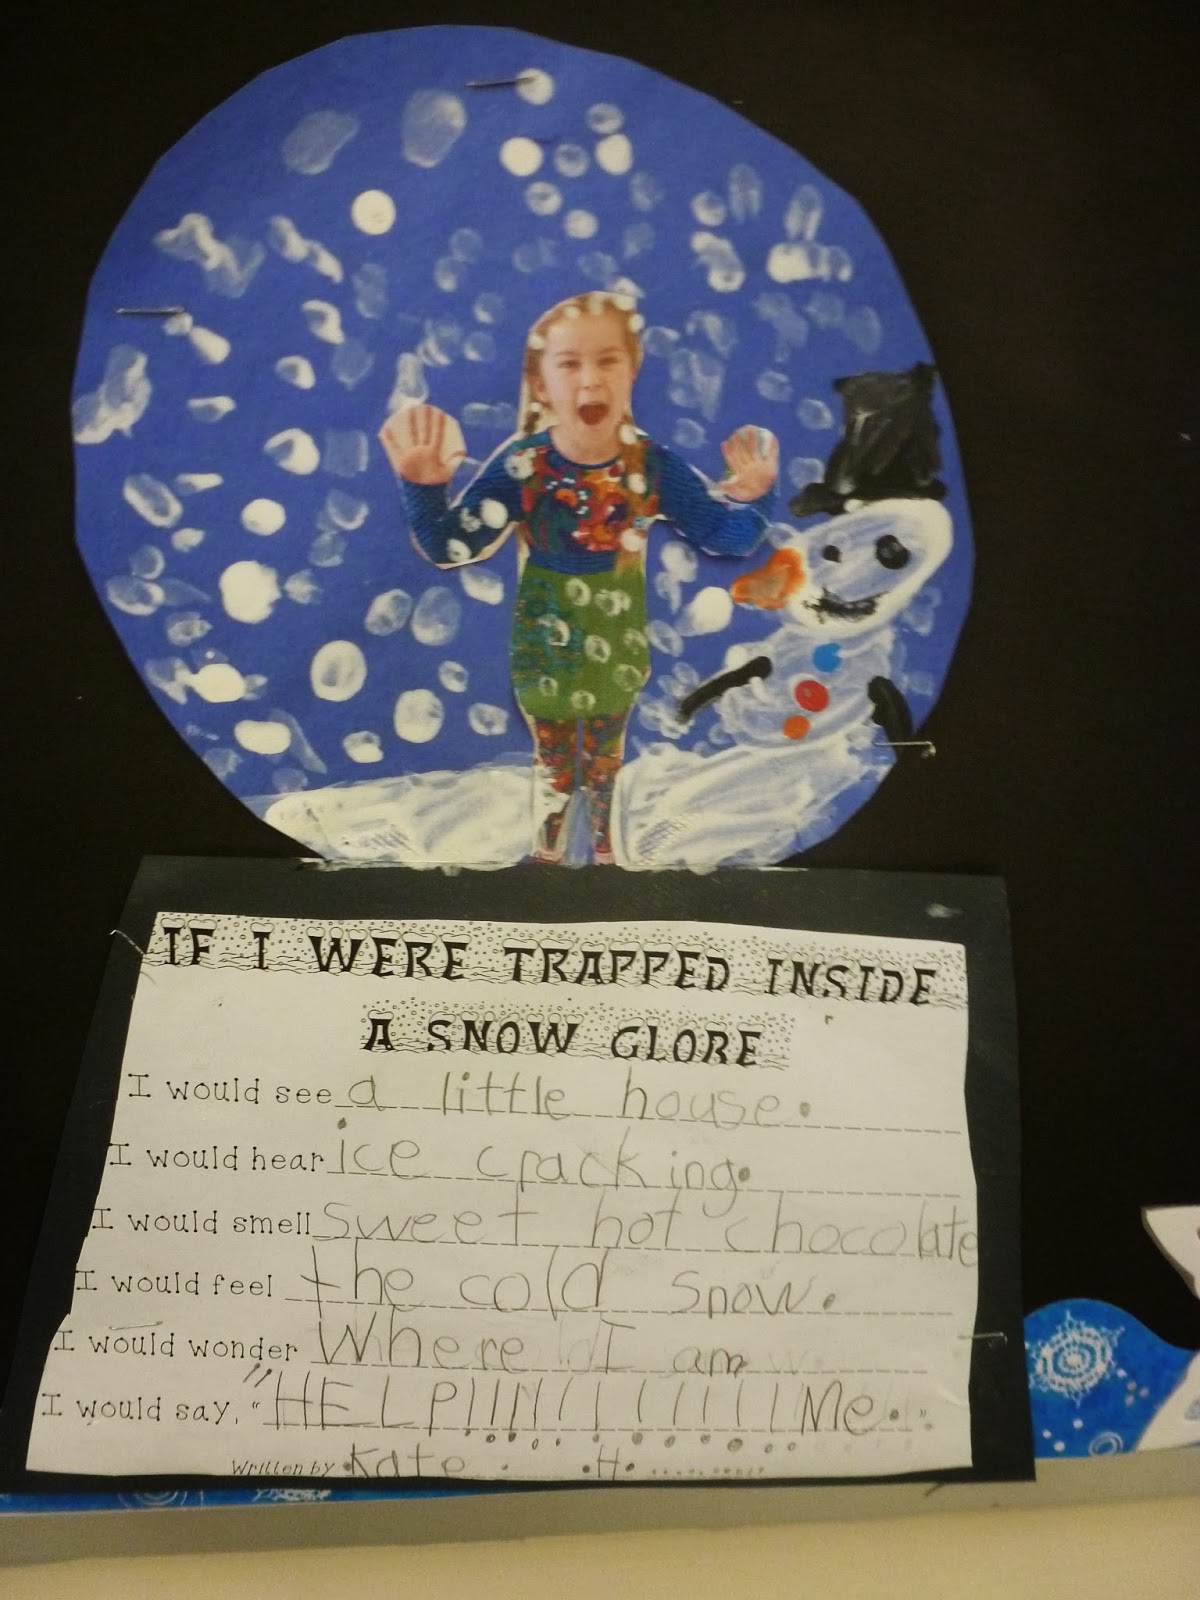 IF I WERE TRAPPED INSIDE
A SNOW GLOBE
I would see a little house.
I would hear ice cracking.
I would smell sweet hot chocolate
I would feel the cold snow.
I would wonder Where I am
I would say, "HELP!!!!!!!!!!!! Me."
Written by Kate H.